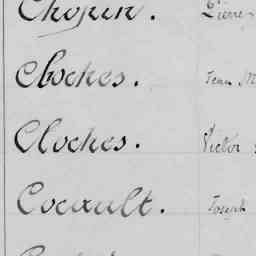 Chopin. Pierre
Cloches. Jean M
Cloches. Victor
Cocault. Joseph